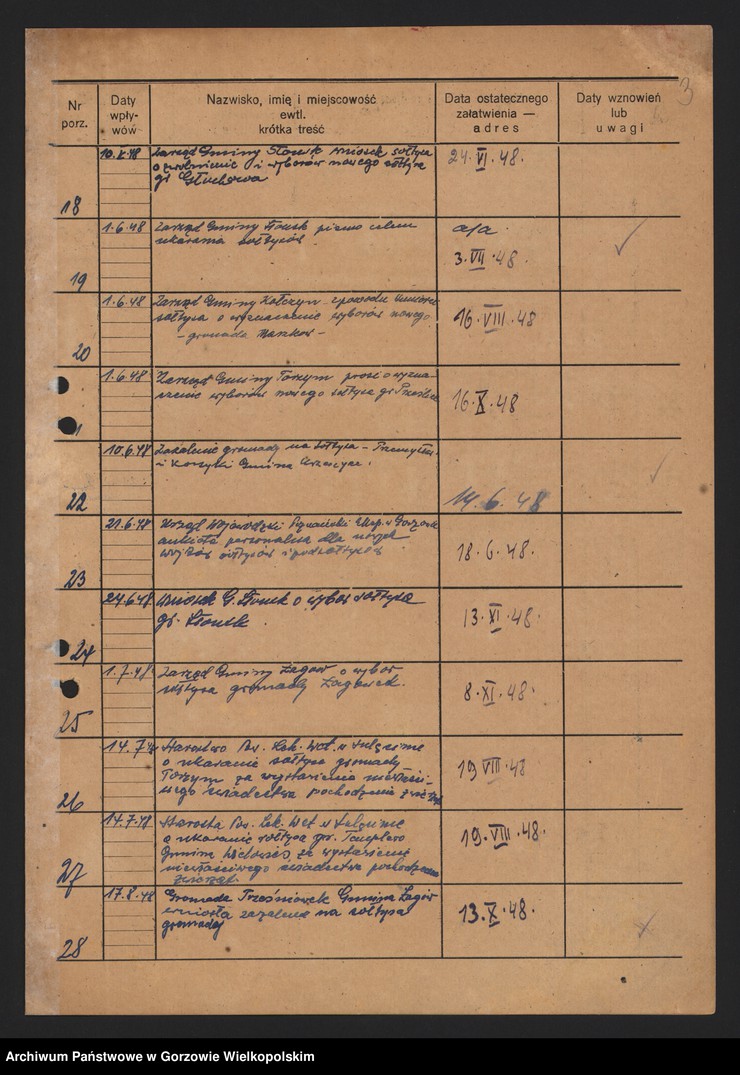 3
Nr porz.
Daty wpły-wów
Nazwisko, imię i miejscowość
ewtl.
krótka treść
Data ostatecznego
załatwienia —
adres
Daty wznowień
lub
uwagi
18
Zarząd Gminy wniosek sołtysa
o zwolnienie i wyborów nowego sołtysa
gr. Głuchowa
24. VI. 48.
19
1.6.48
Zarząd Gminy pismo celem
ukarania sołtysów
a/a.
3. VII. 48.
20
1.6.48
Zarząd Gminy Kołczyn - z powodu
sołtysa o wyznaczenie wyborów nowego
- gromada
16. VIII. 48
1
1.6.48
Zarząd Gminy Torzym prosi o wyzna-
czenie wyborów nowego sołtysa gr.
16. X. 48
22
10.6.48
Zażalenie gromady na sołtysa -
i Gmina
14. 6. 48
23
21.6.48
Urząd Wojewódzki Poznański Eksp. w Gorzowie
ankieta personalna dla
wójtów sołtysów i podsołtysów
18. 6. 48.
24
24.6.48
Wniosek G. o wybór sołtysa
gr.
13. XI. 48.
25
1.7.48
Zarząd Gminy Łagów o wybór
sołtysa gromady Łagówek.
8. XI. 48.
26
14.7.48
Starostwo Pow. Lek. Wet. w Sulęcinie
o ukaranie sołtysa gromady
Torzym za wystawienie niewłaści-
wego świadectwa pochodzenia
19 VIII. 48
27
14.7.48
Starosta Pow. Lek. Wet w Sulęcinie
o ukaranie sołtysa gr. Templewo
Gmina za wystawienie
niewłaściwego świadectwa pochodzenia
zwierząt
19. VIII. 48.
28
17.8.48
Gromada Trześniówek Gmina Łagów
wniosła zażalenie na sołtysa
gromady
13. X. 48.
Archiwum Państwowe w Gorzowie Wielkopolskim